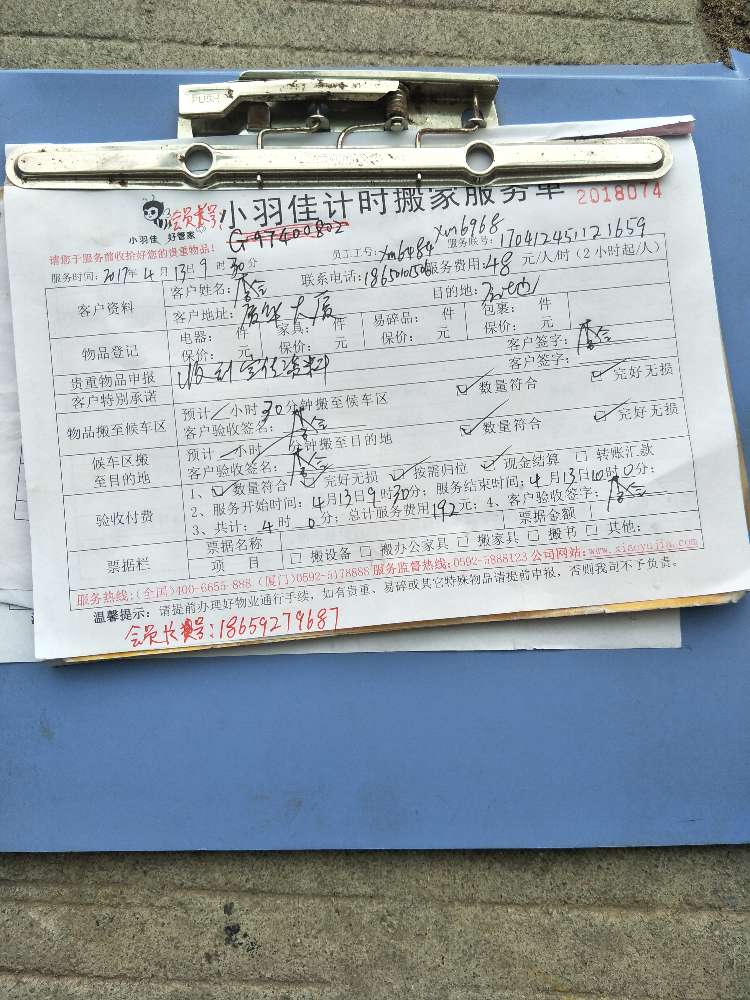 PUSH
小羽佳计时搬家服务单 2018074
小羽佳 好管家
会员卡号: G97400802
请您于服务前收拾好您的贵重物品!
员工工号: xm6484 xm6968 服务账号: 170412451121659
服务时间: 2017年4月13日9时30分
联系电话: 服务费用: 48元/人/时 (2小时起/人)
客户资料 客户姓名:
客户地址: 目的地:
物品登记 电器: 件 家具: 件 易碎品: 件 包裹: 件
保价: 元 保价: 元 保价: 元 保价: 元
贵重物品申报 客户签字:
客户特别承诺 客户签字:
物品搬至候车区 预计 小时30分钟搬至候车区 数量符合 完好无损
客户验收签名:
候车区搬至目的地 预计 小时 分钟搬至目的地 数量符合 完好无损
客户验收签名:
验收付费 1、数量符合 完好无损 按需归位 现金结算 转账汇款
2、服务开始时间: 4月13日9时30分; 服务结束时间: 4月13日10时0分;
3、共计: 4时0分; 总计服务费用192元; 4、客户验收签字:
票据栏 票据名称 票据金额
项目 搬设备 搬办公家具 搬家具 搬书 其他:
服务热线: (全国)400-6655-888 (厦门)0592-5178888 服务监督热线: 0592-5888123 公司网站: www.xiaoyujia.com
温馨提示: 请提前办理好物业通行手续, 如有贵重、易碎或其它特殊物品请提前申报, 否则我司不予负责。
会员长号: 18659279687